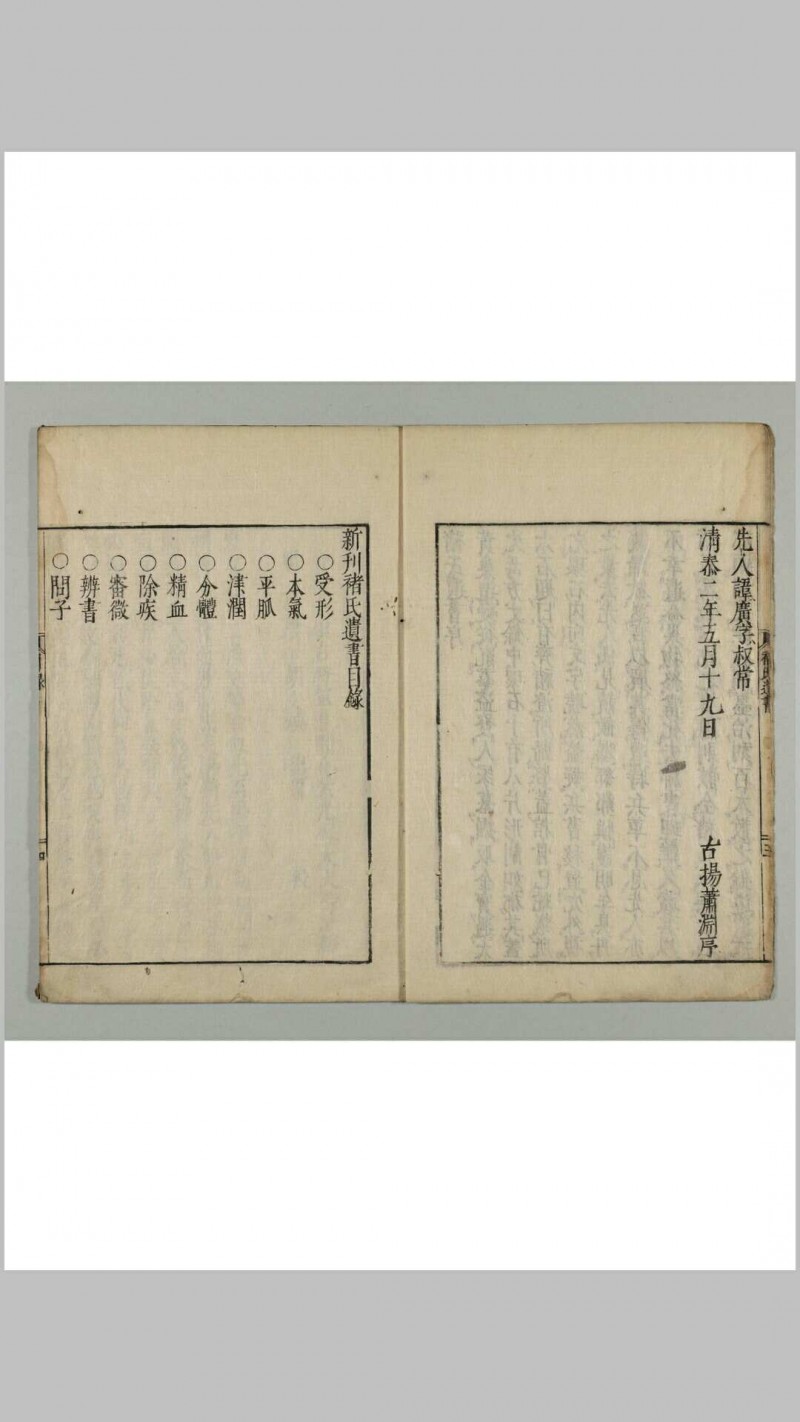 先人諱廣字叔常
清泰二年五月十九日 古揚蕭淵序
新刊褚氏遺書目錄
○受形
○本氣
○平脉
○津潤
○分體
○精血
○除疾
○審微
○辨書
○問子